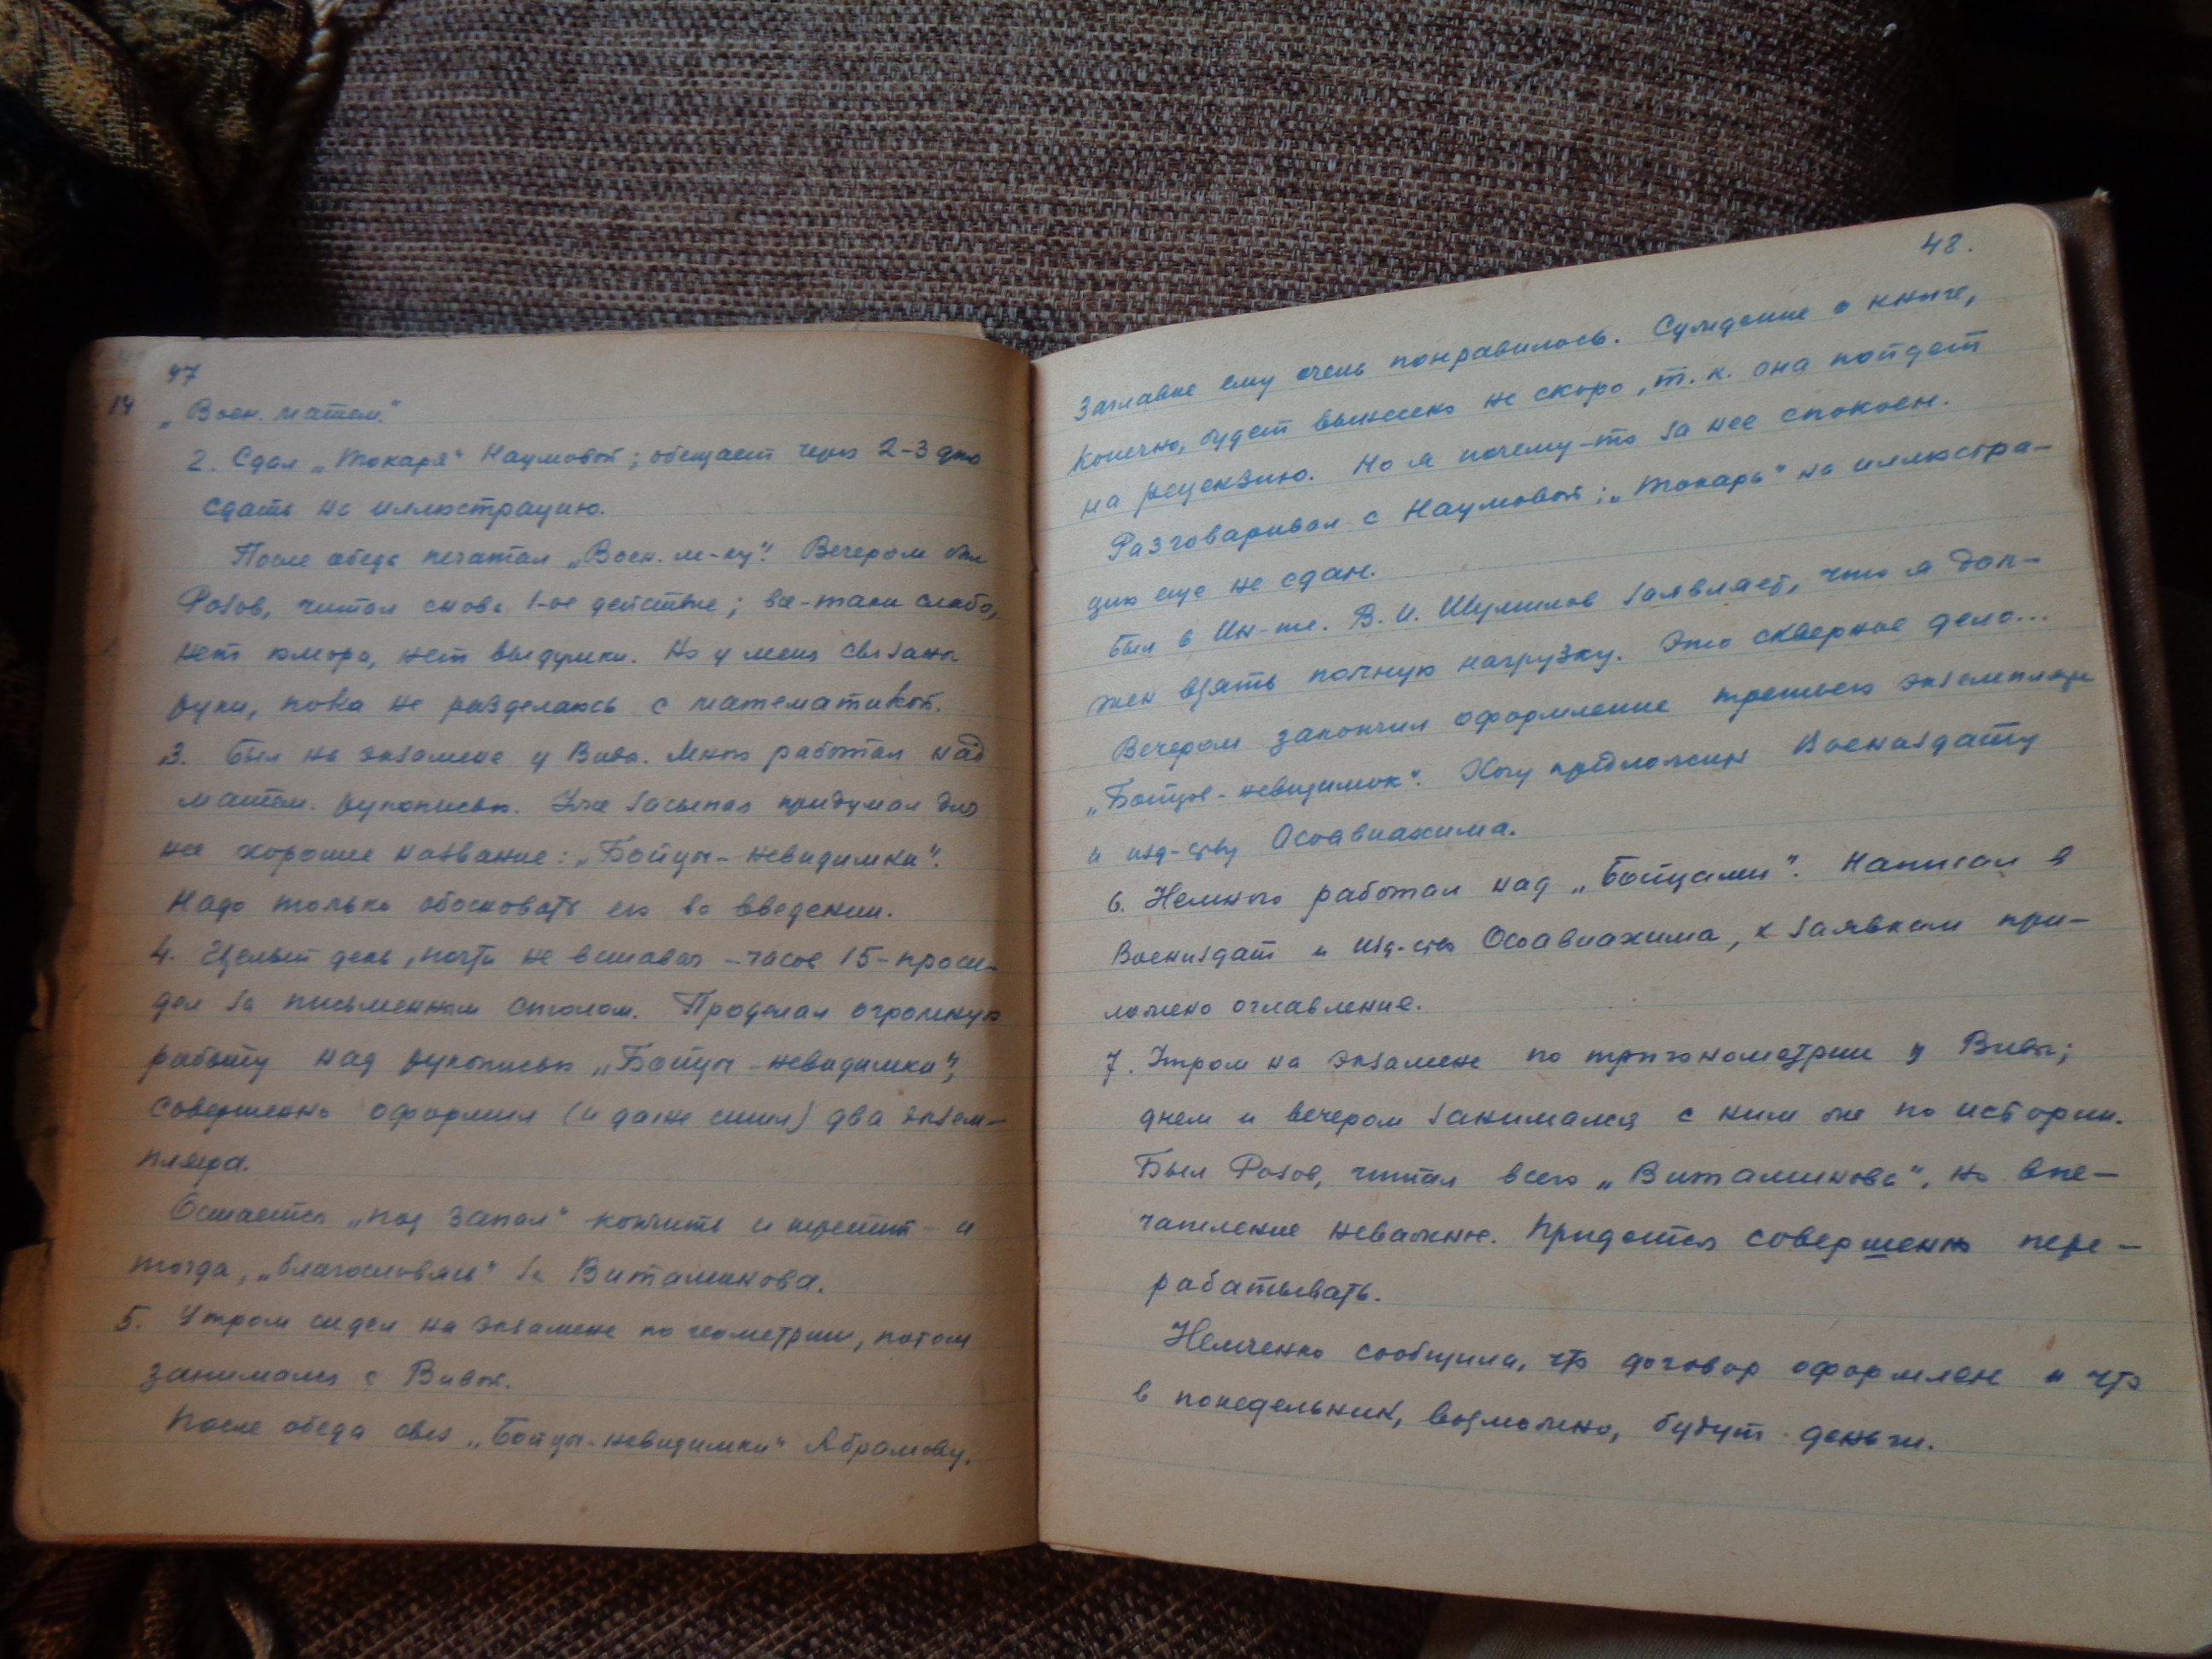 47
14
„Воен. матем."
2. Сдал „Токаря" Наумовой; обещает через 2-3 дня
сдать на иллюстрацию.
После обеда печатал „Воен. м-ку". Вечером был
Розов, читал снова 1-ое действие; все-таки слабо,
нет юмора, нет выдумки. Но у меня связаны
руки, пока не разделаюсь с математикой.
3. Был на экзамене у Вивы. Много работал над
матем. рукописью. Уже засыпая придумал для
нее хорошее название: „Бойцы-невидимки".
Надо только обосновать его во введении.
4. Целый день, почти не вставая - часов 15 - проси-
дел за письменным столом. Проделал огромную
работу над рукописью „Бойцы-невидимки",
совершенно оформил (и даже сшил) два экзем-
пляра.
Остается „Под Запол" кончить и - и
тогда, „благословясь" за Витаминова.
5. Утром сидел на экзамене по геометрии, потом
занимался с Вивой.
После обеда свез „Бойцы-невидимки" Абрамову.
48.
Заглавие ему очень понравилось. Суждение о книге,
конечно, будет вынесено не скоро, т.к. она пойдет
на рецензию. Но я почему-то за нее спокоен.
Разговаривал с Наумовой; „Токарь" на иллюстра-
цию еще не сдан.
Был в Ин-те. В. И. Шумилов заявляет, что я дол-
жен взять полную нагрузку. Это скверное дело...
Вечером закончил оформление третьего экземпляра
„Бойцов-невидимок". Хочу предложить Воениздату
и изд-ству Осоавиахима.
6. Немного работал над „Бойцами". Написал в
Воениздат и изд-ство Осоавиахима, к заявкам при-
ложено оглавление.
7. Утром на экзамене по тригонометрии у Вивы;
днем и вечером занимался с ним же по истории.
Был Розов, читал всего „Витаминова", но впе-
чатление неважное. Придется совершенно пере-
рабатывать.
Немченко сообщила, что договор оформлен и что
в понедельник, возможно, будут деньги.